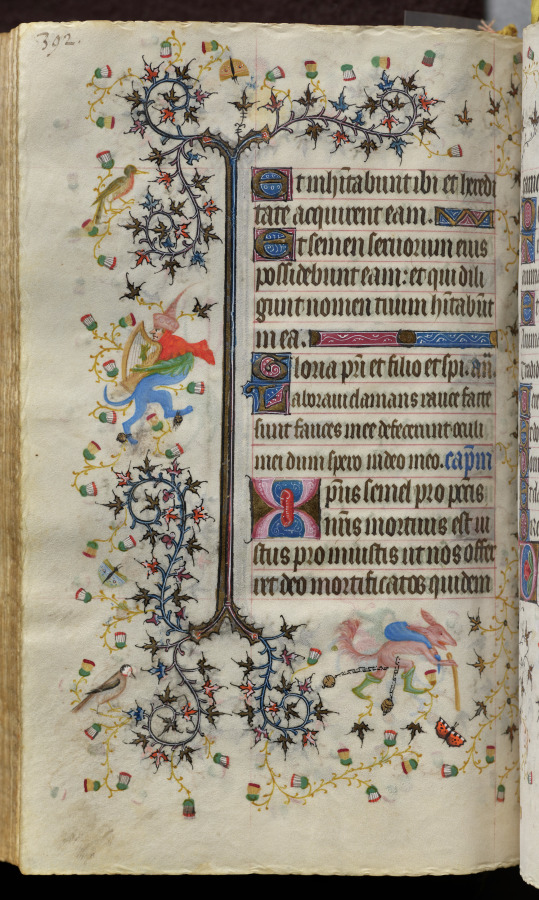 392.
Et inhītabunt ibi et heredi
tate acquirent eam.
Et semen seruorum eius
possidebunt eam: et qui dili
gunt nomen tuum hītabūt
in ea.
Gloria pr̄i et filio et sp̄i. añ
Laboraui clamans rauce facte
sunt fauces mee defecerunt oculi
mei dum spero in deo meo. capm̄
Xp̄us semel pro pec̄is
nr̄is mortuus est iu
stus pro iniustis ut nos offer
ret deo mortificatos quidem